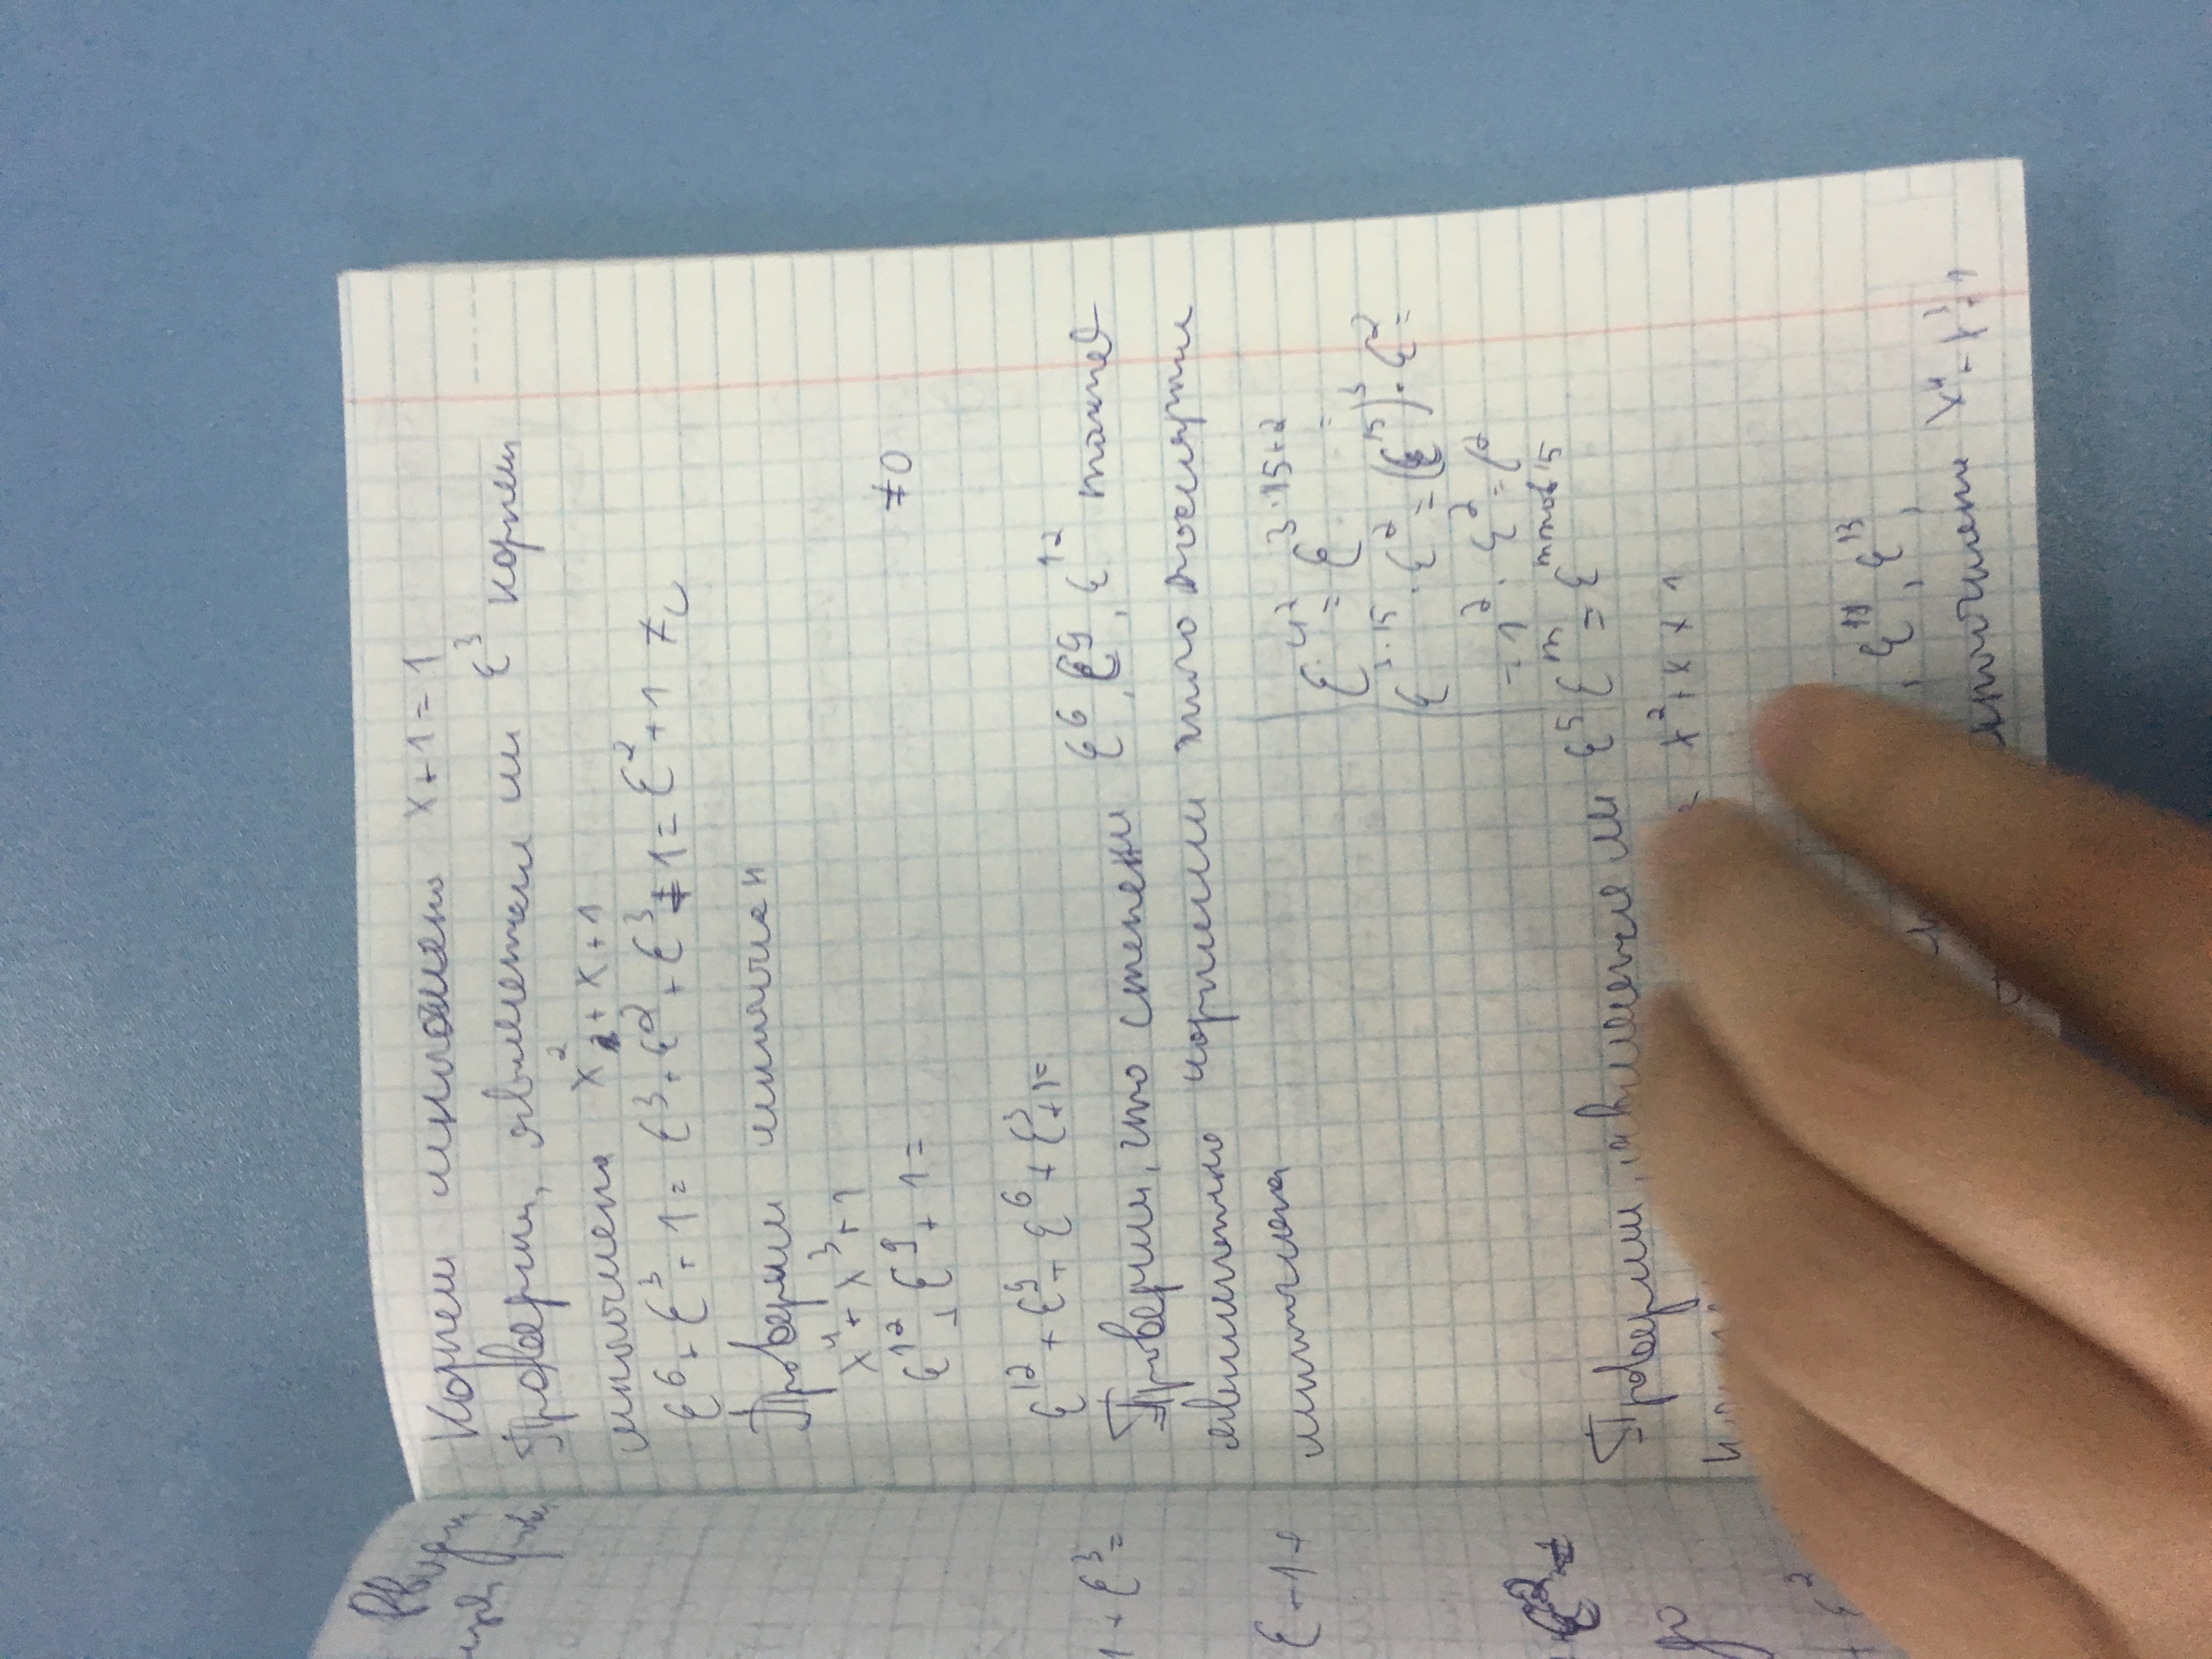 Корнем многочлена x+1=1
Проверим, является ли ε³ корнем
многочлена x² + x + 1
ε⁶ + ε³ + 1 = ε³ + ε² + ε³ + 1 = ε² + 1 ≠
Проверим многочлен
x⁴ + x³ + 1
ε¹² + ε⁹ + 1 = ≠0
ε¹² + ε⁹ + ε⁶ + ε³ + 1 =
Проверим, что степени ε⁶, ε⁹, ε¹² также
являются корнями этого
многочлена
ε⁴² = ε³·¹⁵⁺² =
ε³·¹⁵ · ε² = (ε¹⁵)³ · ε² =
= 1² · ε² =
Проверим, является ли ε⁵ εᵐ = ε
x² + x x 1
, ε¹¹, ε¹³,
многочлена x⁴ + x³ + 1
1 + ε³ =
ε + 1 +
ε²